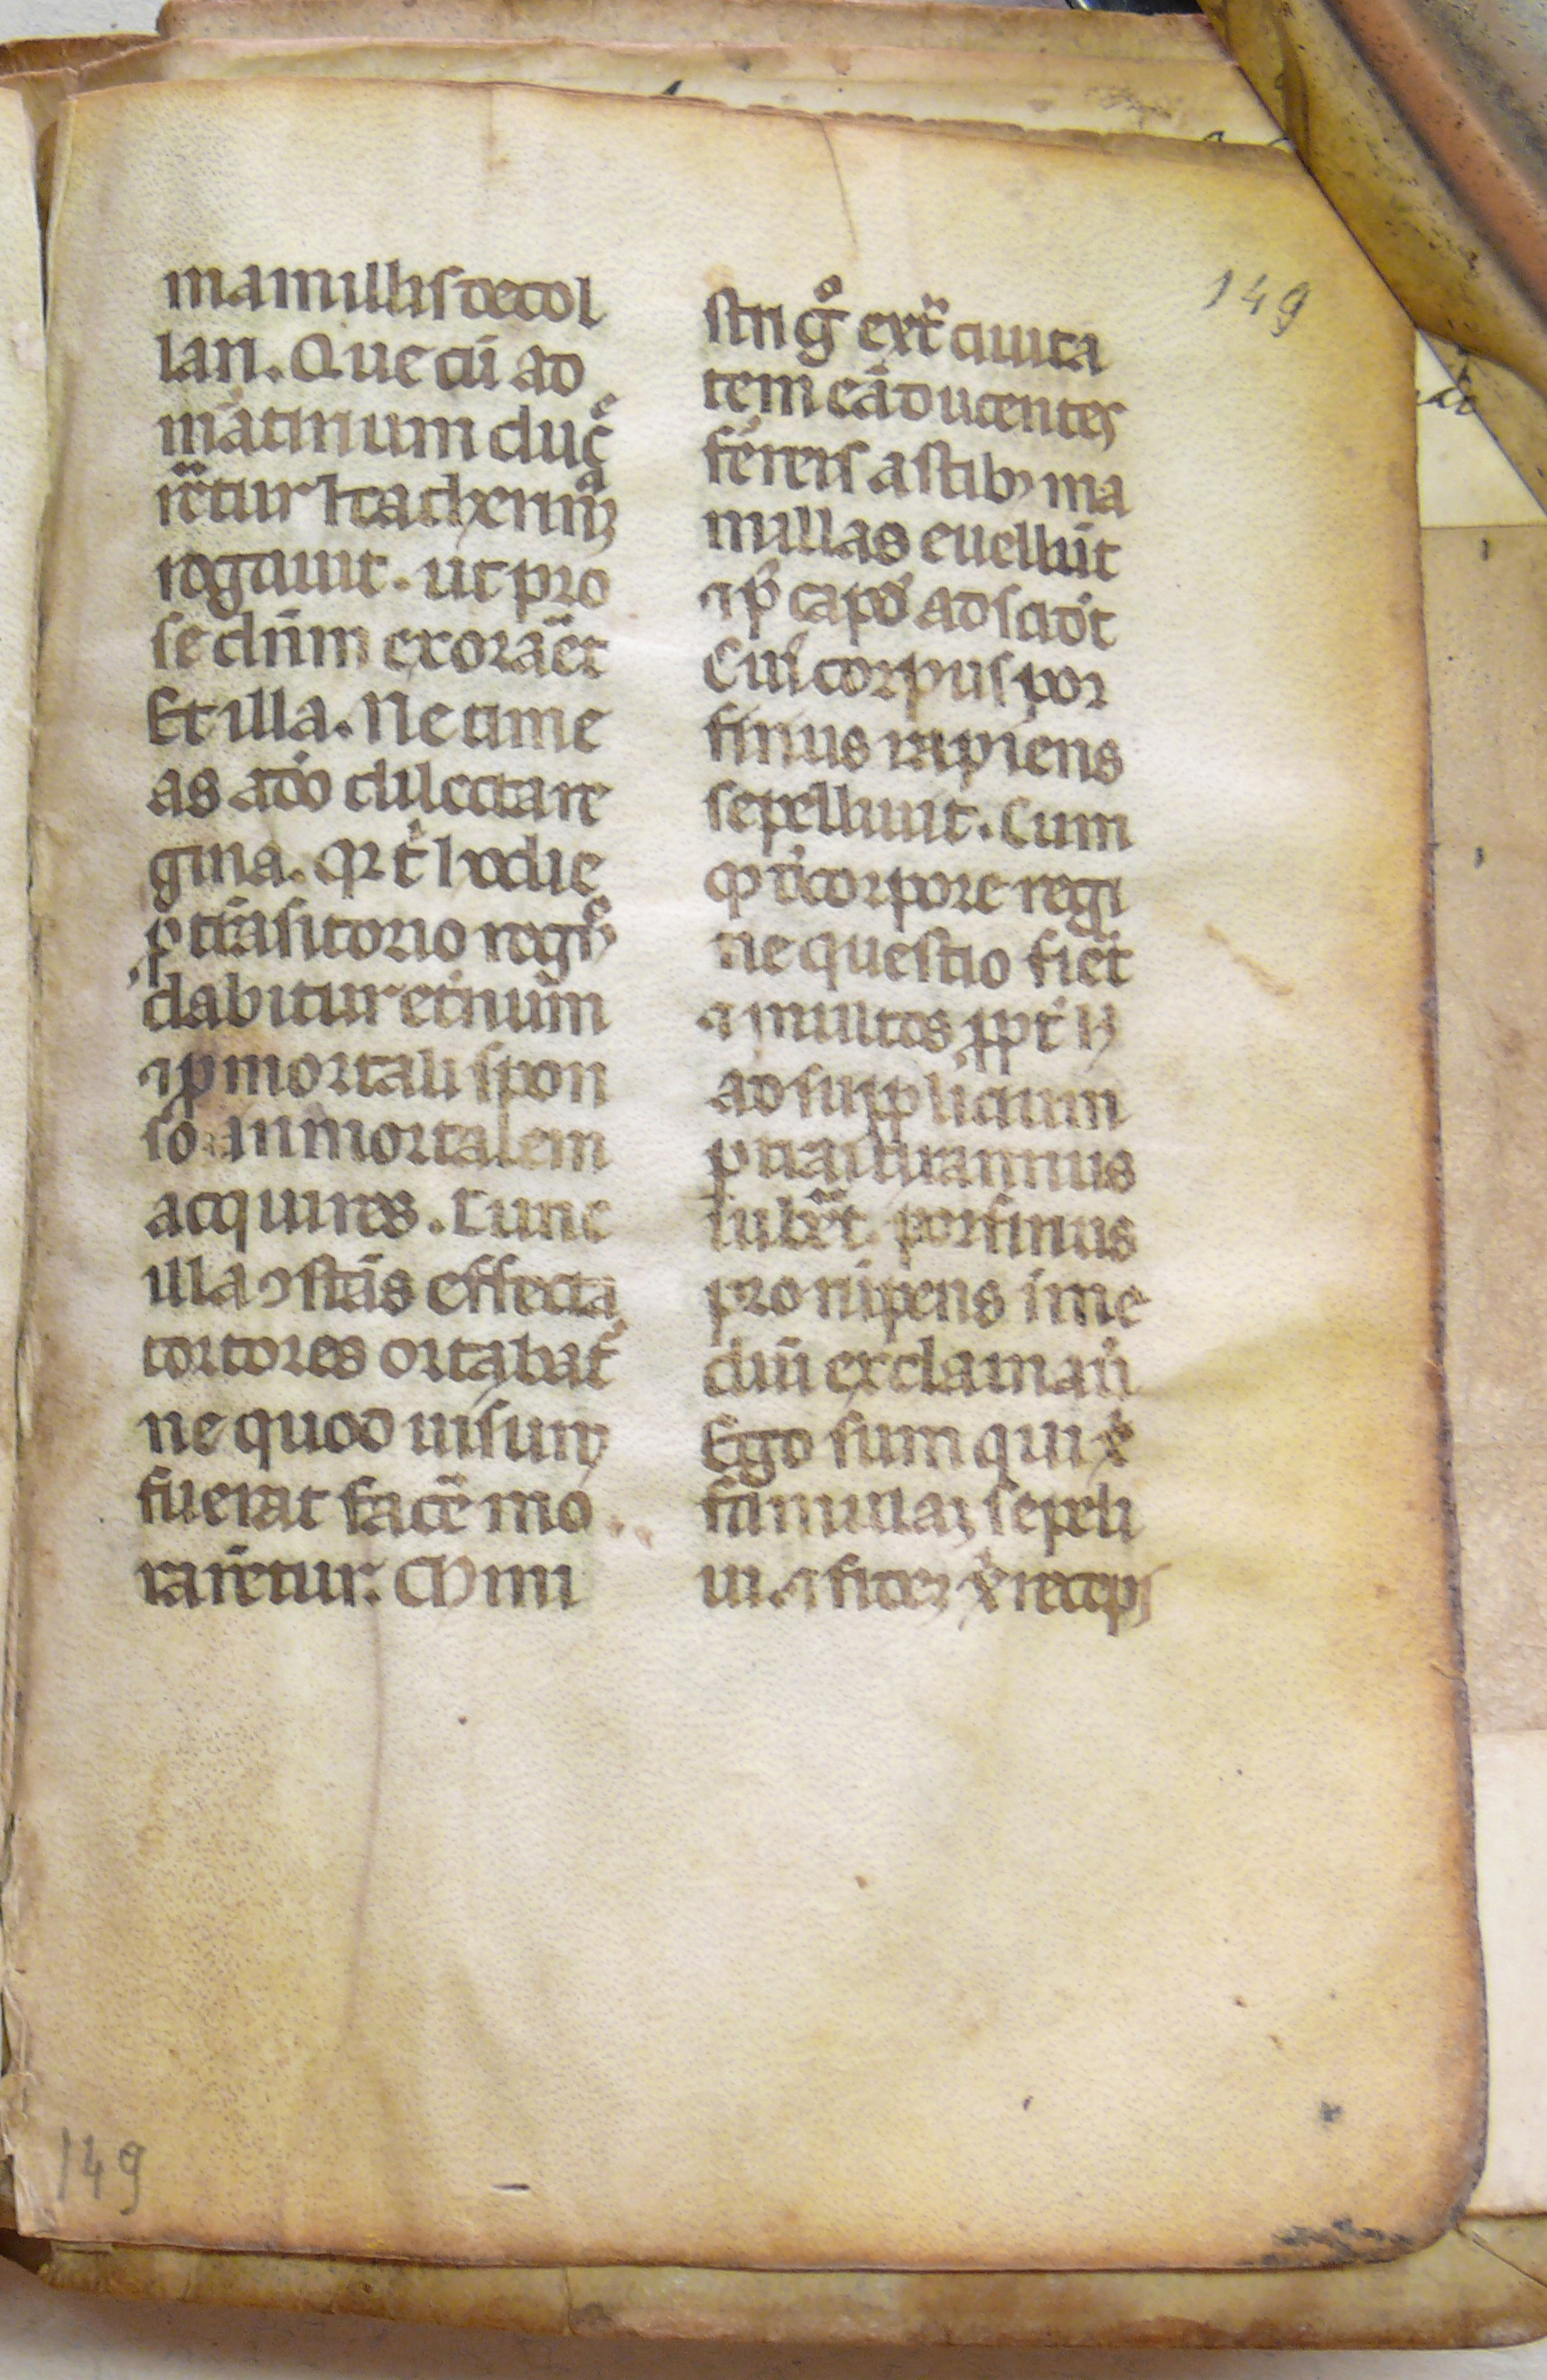 149
mamillis decol
lari. Que cū ad
martirium duce
retur katherinā
rogauit. ut pro
se dn̄m exoraret
Et illa. Ne time
as a deo dilecta re
gina. Qr t̄ hodie
ꝓ trāsitorio regno
dabitur et̄num
⁊ ꝓ mortali spon
so inmortalem
acquires. Tunc
illa ꝯstās effecta
tortores ortabat̄
ne quod uisum
fuerat facē mo
rarētur. Mini
stri gͦ ext̄ ciuita
tem eā ducentes
ferreis astibꝫ ma
millas euellūt
⁊ pꝰ capđ adscidūt
Cuiꝰ corpus por
firius rapiens
sepelliuit. Cum
qꝫ đ corpore regi
ne questio fiet̄
⁊ multos ꝓpt̄ h̄
ad supplicium
ꝑtrai tirannus
iuberet. porfirius
prorūpens ī me
diū exclamauit
Ego sum qui xp̄i
famulaꝫ sepeli
ui. ⁊ fidem xp̄i recepi
149